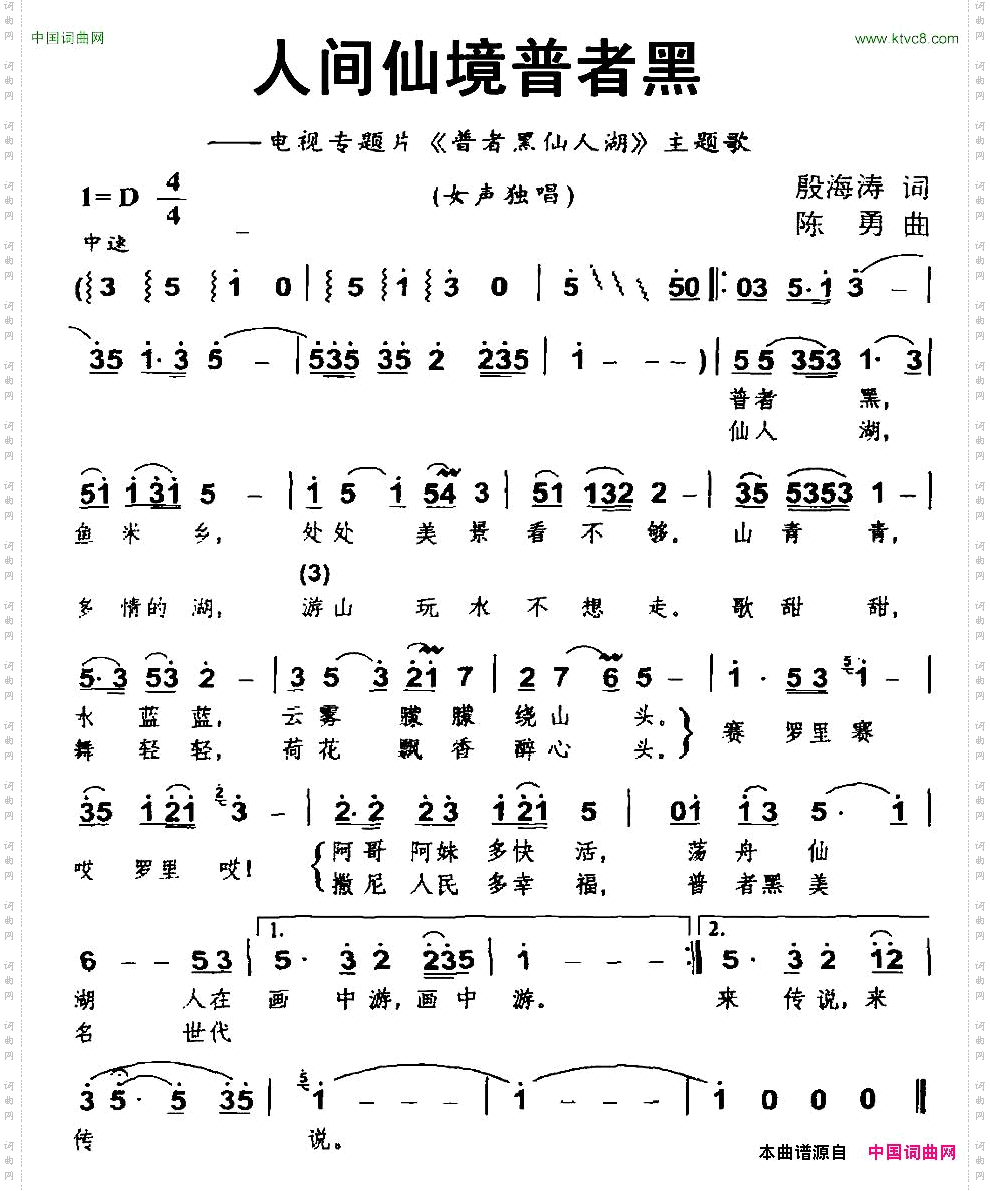 中国词曲网
www.ktvc8.com
人间仙境普者黑
——电视专题片《普者黑仙人湖》主题歌
1=D 4/4
(女声独唱)
殷海涛 词
陈 勇 曲
中速
(3 5 1 0 | 5 1 3 0 | 5 50 ‖: 03 5·1 3 - |
35 1·3 5 - | 535 35 2 235 | 1 - - ) | 55 353 1· 3 |
普者 黑,
仙人 湖,
51 131 5 - | 1 5 1 54 3 | 51 132 2 - | 35 5353 1 - |
鱼 米 乡, 处处 美 景 看 不 够. 山 青 青,
(3)
多 情的 湖, 游山 玩 水 不 想 走. 歌 甜 甜,
5·3 53 2 - | 3 5 3 21 7 | 2 7 6 5 - | 1 · 53 5 1 - |
水 蓝 蓝, 云 雾 朦 朦 绕 山 头. 赛 罗里 赛
舞 轻 轻, 荷 花 飘 香 醉 心 头.
35 1 21 2 3 - | 2·2 23 1 21 5 | 01 13 5· 1 |
哎 罗里 哎! 阿哥 阿妹 多快 活, 荡 舟 仙
撒尼 人民 多幸 福, 普 者黑 美
6 - - 53 | 1. 5· 3 2 235 | 1 - - - :‖ 2. 5· 3 2 12 |
湖 人在 画 中游,画 中 游. 来 传 说,来
名 世代
3 5· 5 35 | 5 1 - - - | 1 - - - | 1 0 0 0 ‖
传 说。
本曲谱源自 中国词曲网